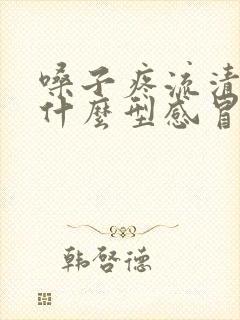 嗓子疼流清
什麼型感冒
韩啓德